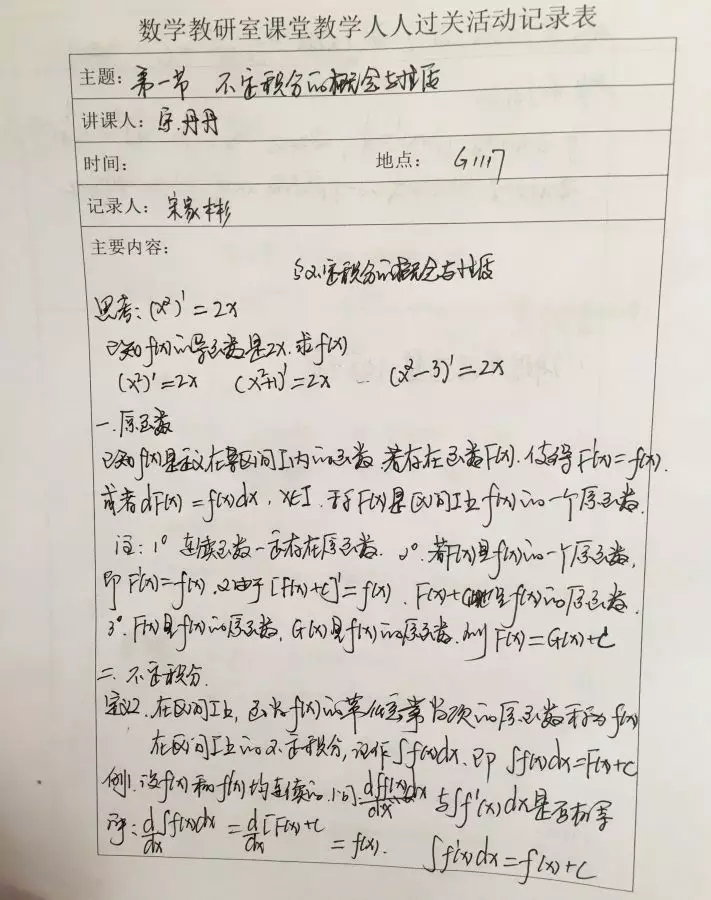 数学教研室课堂教学人人过关活动记录表
主题: 第一节 不定积分的概念与性质
讲课人: 宋丹丹
时间: 地点: G1117
记录人: 宋家彬
主要内容:
§不定积分的概念与性质
思考: (x²)' = 2x
已知f(x)的导函数是2x. 求f(x)
(x²)' = 2x (x²+1)' = 2x … (x²-3)' = 2x
一. 原函数
已知f(x)是定义在某区间I内的函数, 若存在函数F(x). 使得F'(x) = f(x).
或者dF(x) = f(x)dx, x∈I. 称F(x)是区间I上f(x)的一个原函数.
注: 1° 连续函数一定存在原函数. 2°. 若F(x)是f(x)的一个原函数,
即F'(x) = f(x), 又由于[F(x)+C]' = f(x). F(x)+C也是f(x)的原函数.
3°. F(x)是f(x)的原函数, G(x)是f(x)的原函数. 则F(x) = G(x)+C
二. 不定积分.
定义2. 在区间I上, 函数f(x)的带任意常数项的原函数称为f(x)
在区间I上的不定积分, 记作∫f(x)dx. 即 ∫f(x)dx = F(x)+C
例1. 设f(x)和f'(x)均连续的. 问: d∫f(x)dx/dx 与∫f'(x)dx是否相等
d/dx ∫f(x)dx = d/dx [F(x)+C = f(x). ∫f'(x)dx = f(x)+C